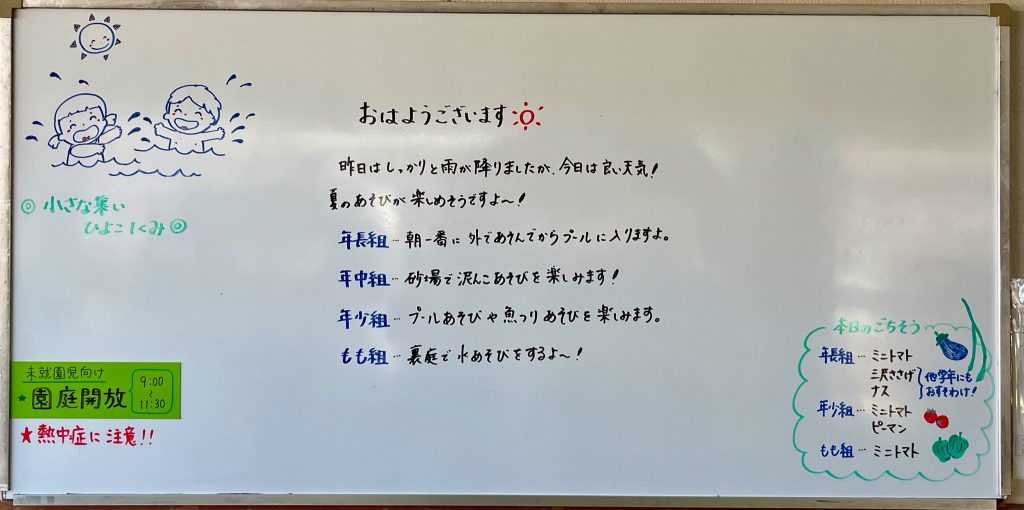 おはようございます
昨日はしっかりと雨が降りましたが、今日は良い天気！
夏のあそびが楽しめそうですよ～！
年長組…朝一番に外であそんでからプールに入りますよ。
年中組…砂場で泥んこあそびを楽しみます！
年少組…プールあそびや魚つりあそびを楽しみます。
もも組…裏庭で水あそびをするよ～！
◎小さな集い
ひよこ1くみ◎
未就園児向け
★園庭開放 9:00
～
11:30
★熱中症に注意!!
本日のごちそう
年長組…ミニトマト
三尺ささげ
ナス
他学年にも
おすそわけ！
年少組…ミニトマト
ピーマン
もも組…ミニトマト